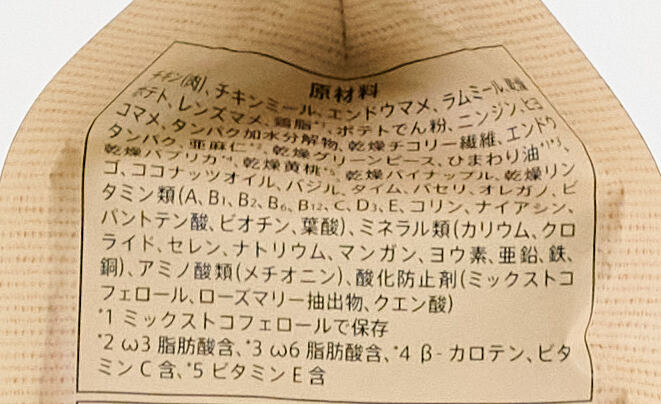 原材料
チキン(肉)、チキンミール、エンドウマメ、ラムミール、乾燥
ポテト、レンズマメ、鶏脂*¹、ポテトでん粉、ニンジン、ヒヨ
コマメ、タンパク加水分解物、乾燥チコリー繊維、エンドウ
タンパク、亜麻仁*²、乾燥グリーンピース、ひまわり油*¹*³、
乾燥パプリカ*⁴、乾燥黄桃*⁵、乾燥パイナップル、乾燥リン
ゴ、ココナッツオイル、バジル、タイム、パセリ、オレガノ、ビ
タミン類(A、B₁、B₂、B₆、B₁₂、C、D₃、E、コリン、ナイアシン、
パントテン酸、ビオチン、葉酸)、ミネラル類(カリウム、クロ
ライド、セレン、ナトリウム、マンガン、ヨウ素、亜鉛、鉄、
銅)、アミノ酸類(メチオニン)、酸化防止剤(ミックストコ
フェロール、ローズマリー抽出物、クエン酸)
*1 ミックストコフェロールで保存
*2 ω3 脂肪酸含、*3 ω6 脂肪酸含、*4 β-カロテン、ビタ
ミンC含、*5 ビタミンE含